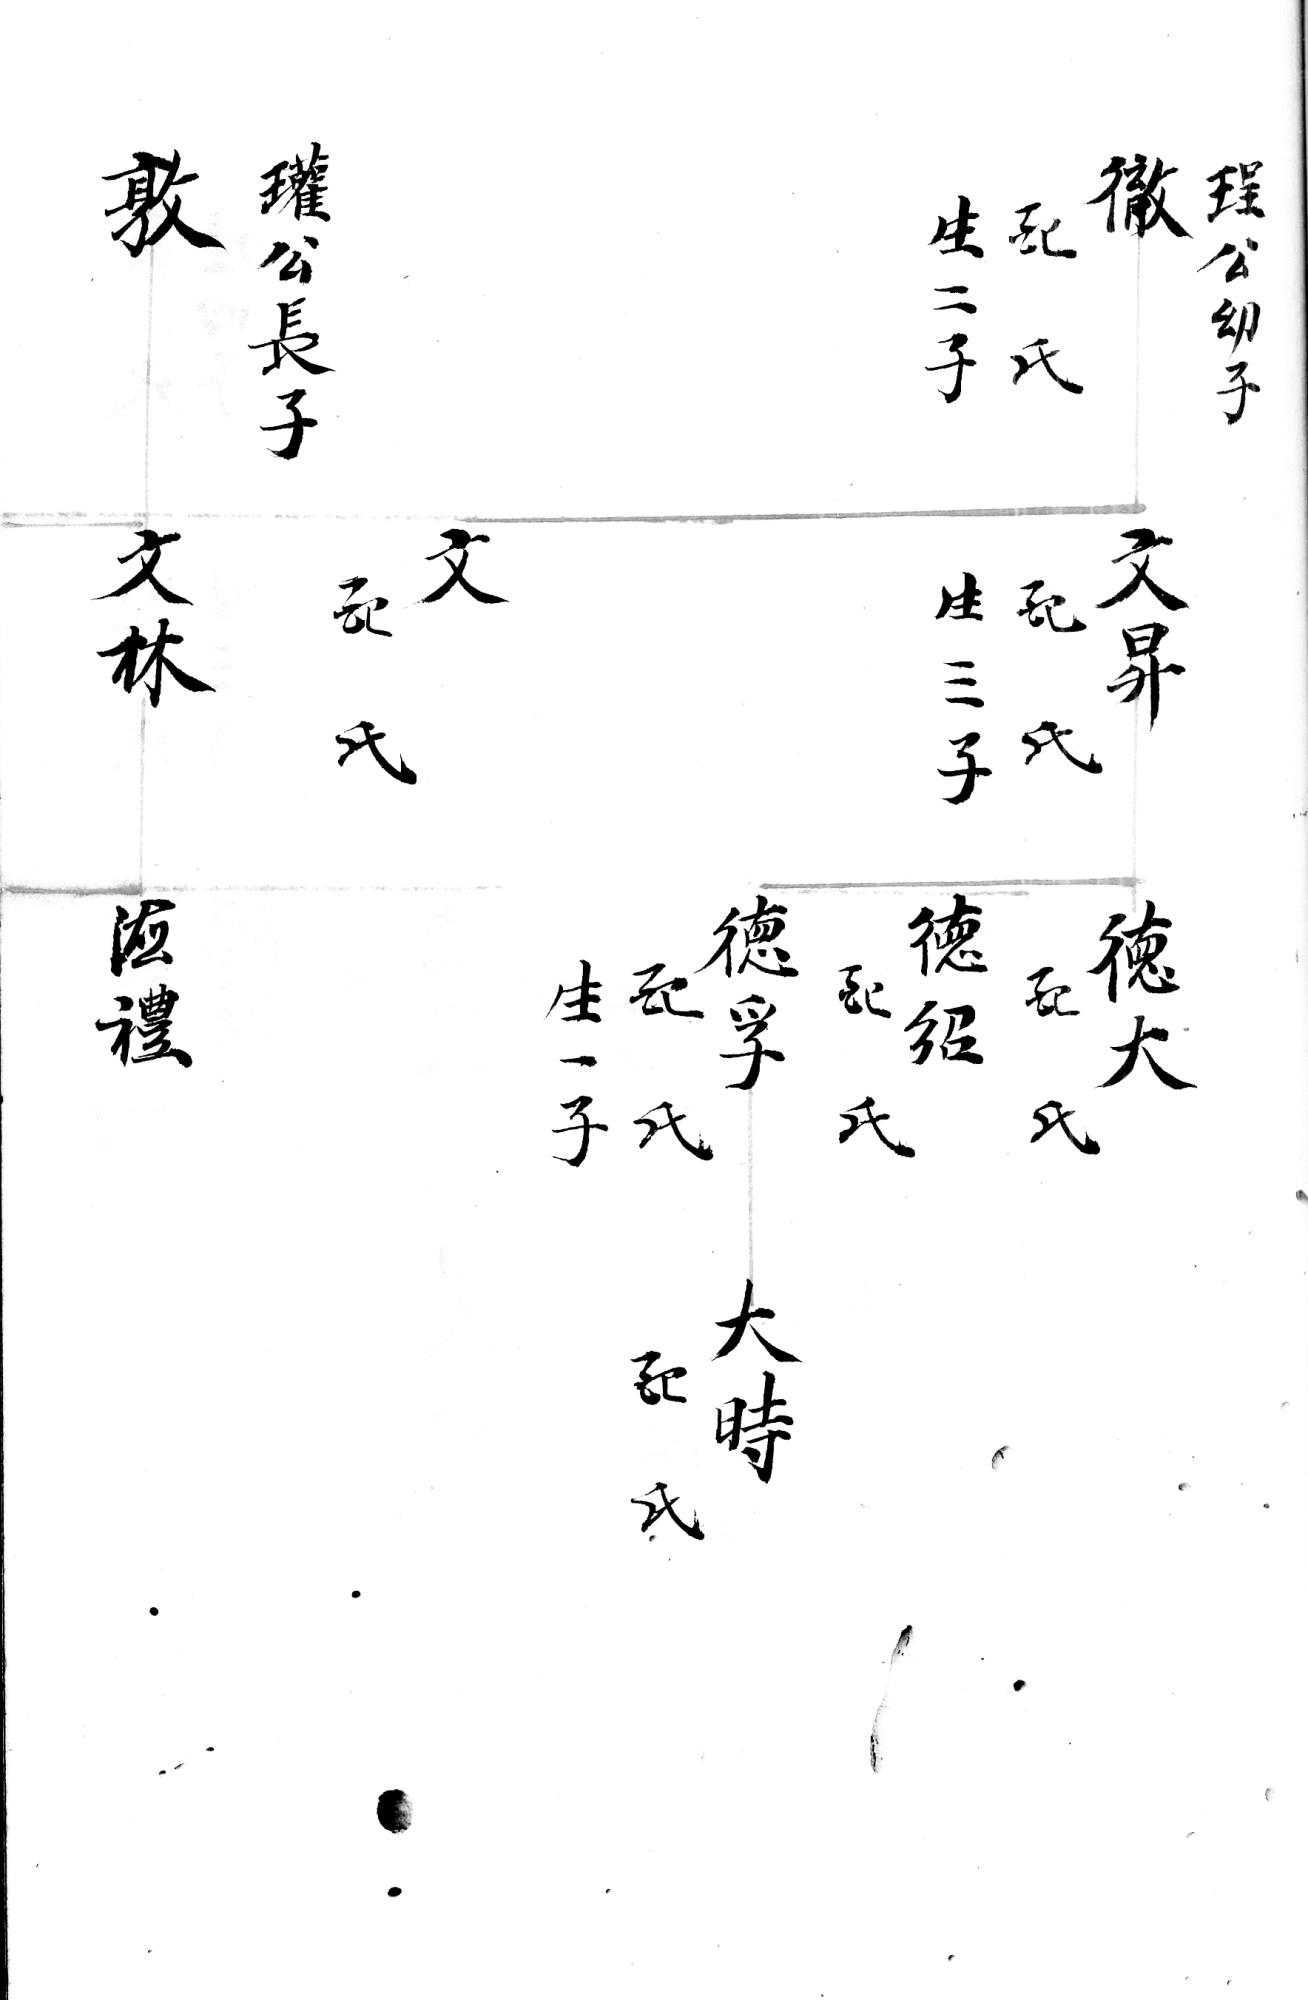 珵公幼子
徹
配 氏
生二子
瓘公長子
敦
文昇
配 氏
生三子
文
配 氏
文林
德大
配 氏
德紹
配 氏
德孚
配 氏
生一子
禮
大時
配 氏